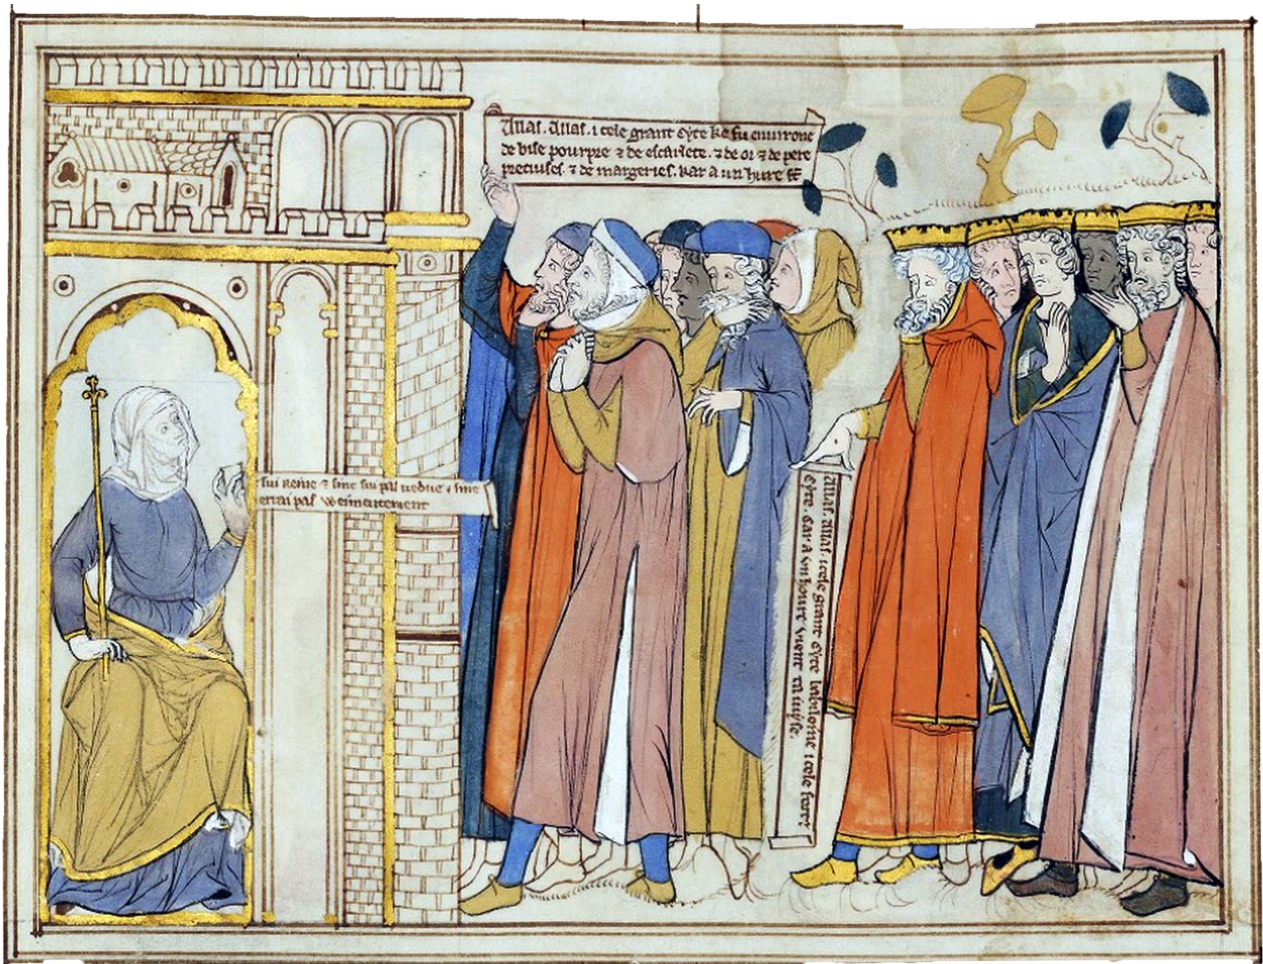 Allas. Allas. i cele grant cyte ke fu environe
de bise pourpre ⁊ de escarlete. ⁊ de or ⁊ de pere
preciuses. ⁊ de margeries. kar a un hure
sui reine ⁊ sine sui pas uedue ⁊ sine
uerai pas weimentement
Allas. Allas. icele grant cyte babiloine icele forte
cyte. kar a un houre uient ta iuyse.